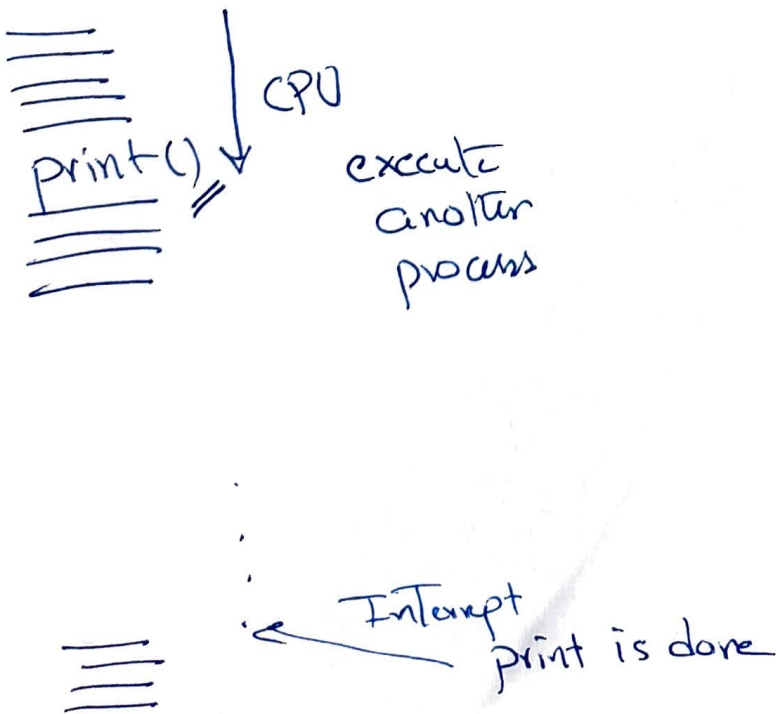 CPU
print()
execute
another
process
Interrupt
print is done